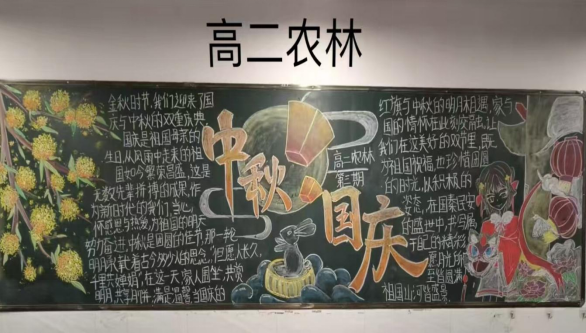 高二农林
金秋时节,我们迎来了国
庆与中秋的双重庆典
国庆是祖国母亲的
生日,从风雨中走来的祖
国如今繁荣昌盛,这是
无数先辈拼搏的成果,作
为新时代的我们,当心
怀感恩与热爱,为祖国的明天
努力奋进,中秋是团圆的佳节,那一轮
明月承载着古今多少人的思念,但愿人长久,
千里共婵娟,在这一天,家人围坐,共赏
明月,共享月饼,满是温馨,当国庆的
中秋
国庆
高二农林
第二期
红旗与中秋的明月相遇,家与
国的情怀在此刻交融,让
我们在这美好的双节里,既
为祖国祝福,也珍惜团圆
的时光,以积极的
姿态,在国泰民安
的盛世中,书写属
于自己的精彩,
愿月光所
至皆圆满,
祖国山河皆盛景